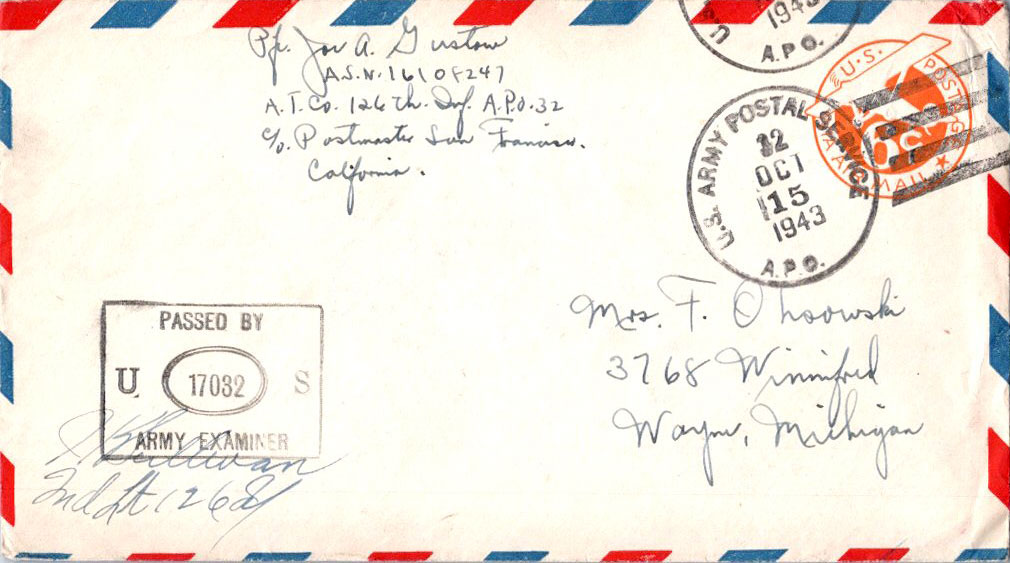 Pfc. Joe A. Gustow
A.S.N. 16108247
A.T. Co. 126th. Inf. A.P.O. 32
c/o. Postmaster San Francisco.
California.
U.S.
1943
A.P.O.
U.S. POSTAGE
VIA AIR MAIL
U.S. ARMY POSTAL SERVICE
12
OCT
15
1943
A.P.O.
Mrs. F. Olsowski
3768 Winifred
Wayne, Michigan
PASSED BY
U 17032 S
ARMY EXAMINER
Sullivan
2nd Lt 126